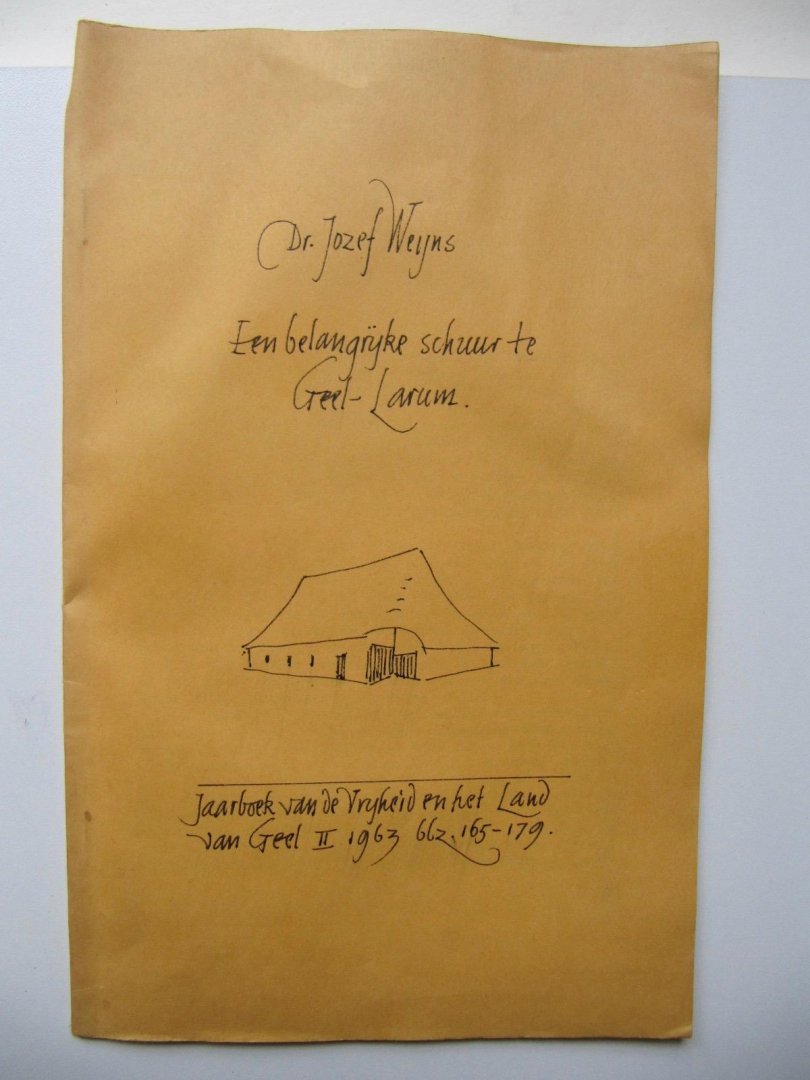 Dr. Jozef Weyns
Een belangrijke schuur te
Geel-Larum.
Jaarboek van de Vrijheid en het Land
van Geel II 1963 blz. 165-179.